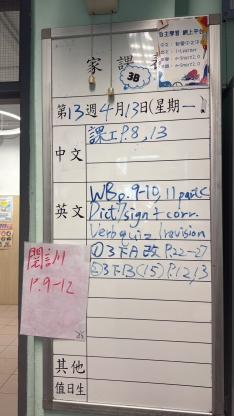 自主學習 網上平台
家課表
3B
第13週4月13日(星期一)
中文
課工P.8,13
英文
WB p.9-10,11 part C
Dict/sign + corr.
Verb quiz/revision
①3下A改 P.22-27
②3下B(15) P.12,13
閱訓
P.9-12
其他
值日生